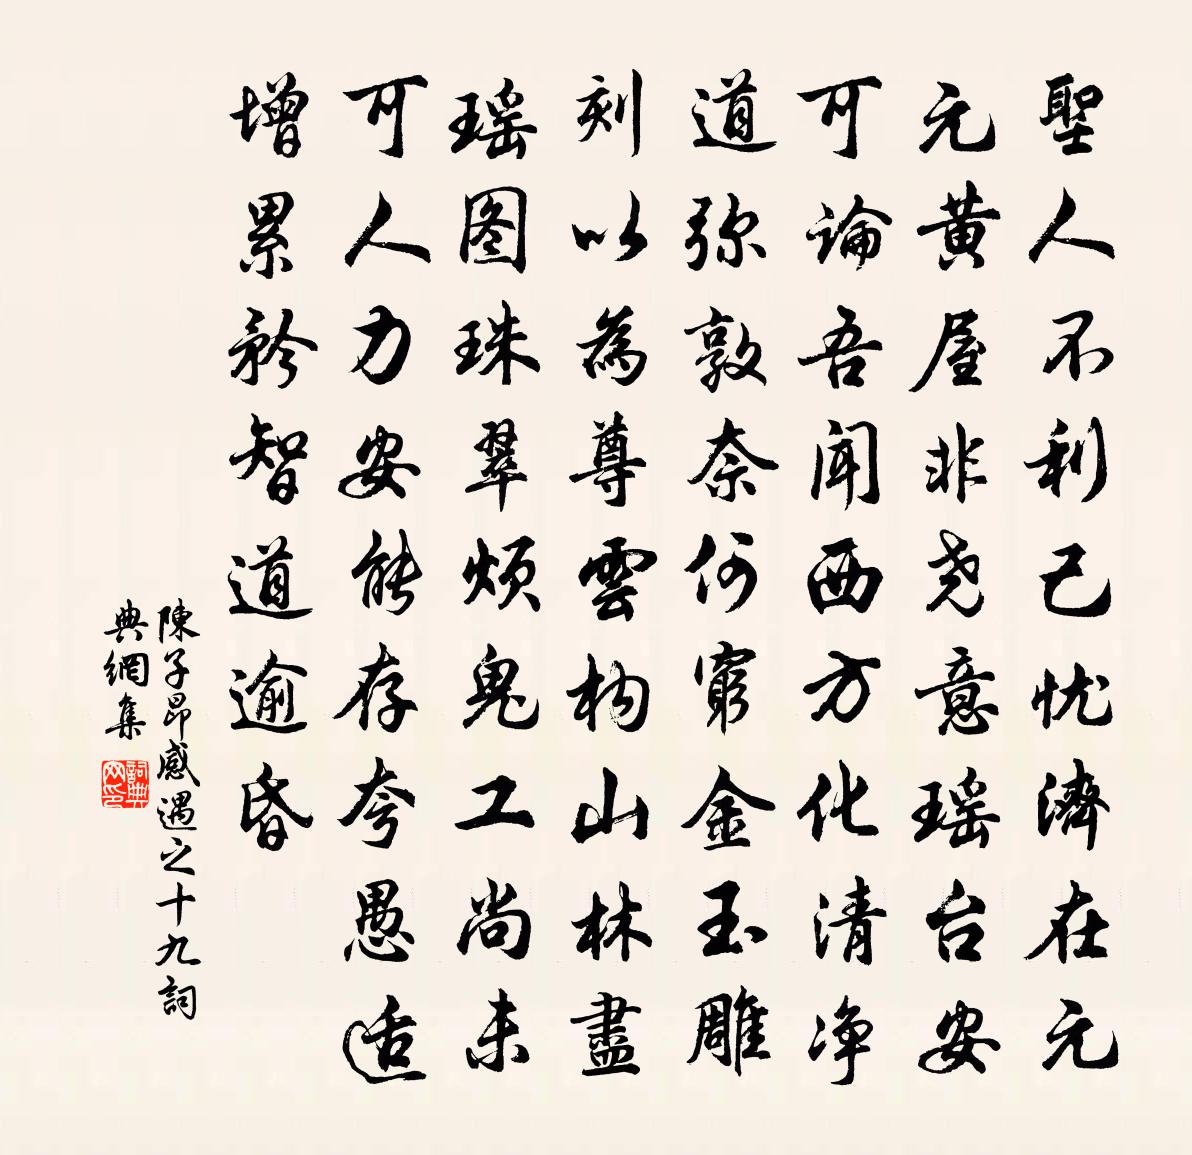 聖人不利己忧濟在元
元黄屋非尧意瑶台安
可論吾聞西方化清净
道弥敦奈何窮金玉雕
刻以為尊雲构山林盡
瑶图珠翠烦鬼工尚未
可人力安能存夸愚适
增累矜智道逾昏
陳子昂感遇之十九詞
典網集
詞典网印